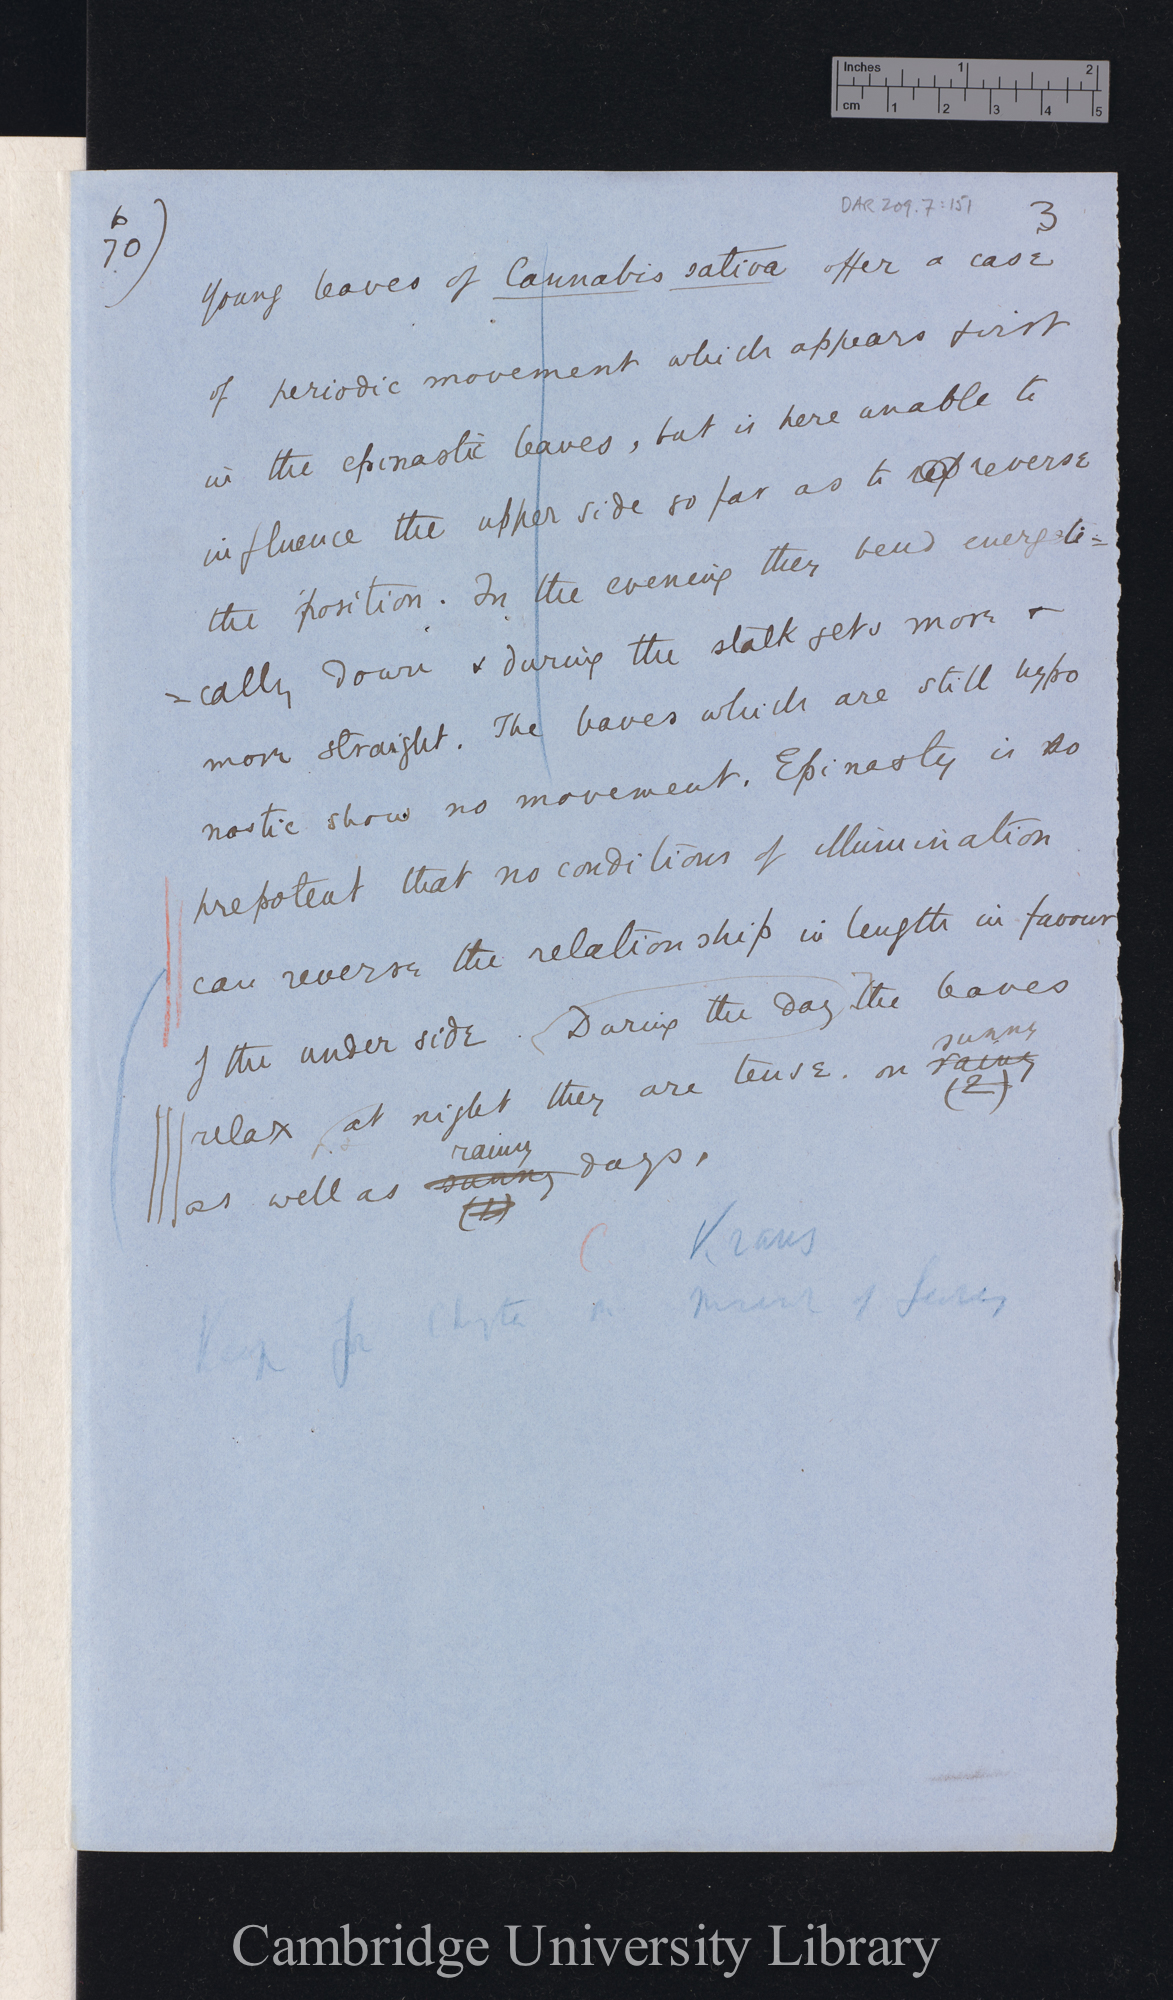 Inches 1 2
cm 1 2 3 4 5
DAR 209.7:151
3
6
70)
Young leaves of Cannabis sativa offer a case
of periodic movement which appears first
in the epinastic leaves, but is here unable to
influence the upper side so far as to reverse
the position. In the evening they bend energeti=
=cally down & during the stalk gets more &
more straight. The leaves which are still hypo
nastic show no movement. Epinasty is so
prepotent that no conditions of illumination
can reverse the relationship in length in favour
of the under side. (During the day) the leaves
sunny
relax at night they are tense. on rainy
(2)
rainy
as well as sunny days.
(1)
Kraus
Keep for Chapter on Movement of Leaves
Cambridge University Library